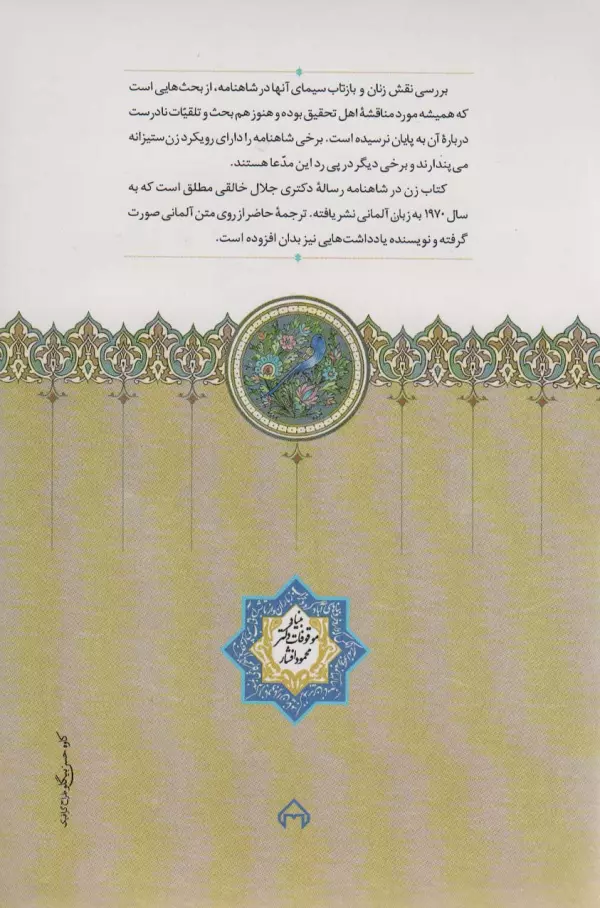 بررسی نقش زنان و بازتاب سیمای آنها در شاهنامه، از بحث‌هایی است
که همیشه مورد مناقشهٔ اهل تحقیق بوده و هنوز هم بحث و تلقیّات نادرست
دربارهٔ آن به پایان نرسیده است. برخی شاهنامه را دارای رویکرد زن‌ستیزانه
می‌پندارند و برخی دیگر در پی رد این مدّعا هستند.
کتاب زن در شاهنامه رسالهٔ دکتری جلال خالقی مطلق است که به
سال ۱۹۷۰ به زبان آلمانی نشر یافته. ترجمهٔ حاضر از روی متن آلمانی صورت
گرفته و نویسنده یادداشت‌هایی نیز بدان افزوده است.
بنیاد
موقوفات دکتر
محمود افشار
کاوه حسن بیگلو طراح گرافیک